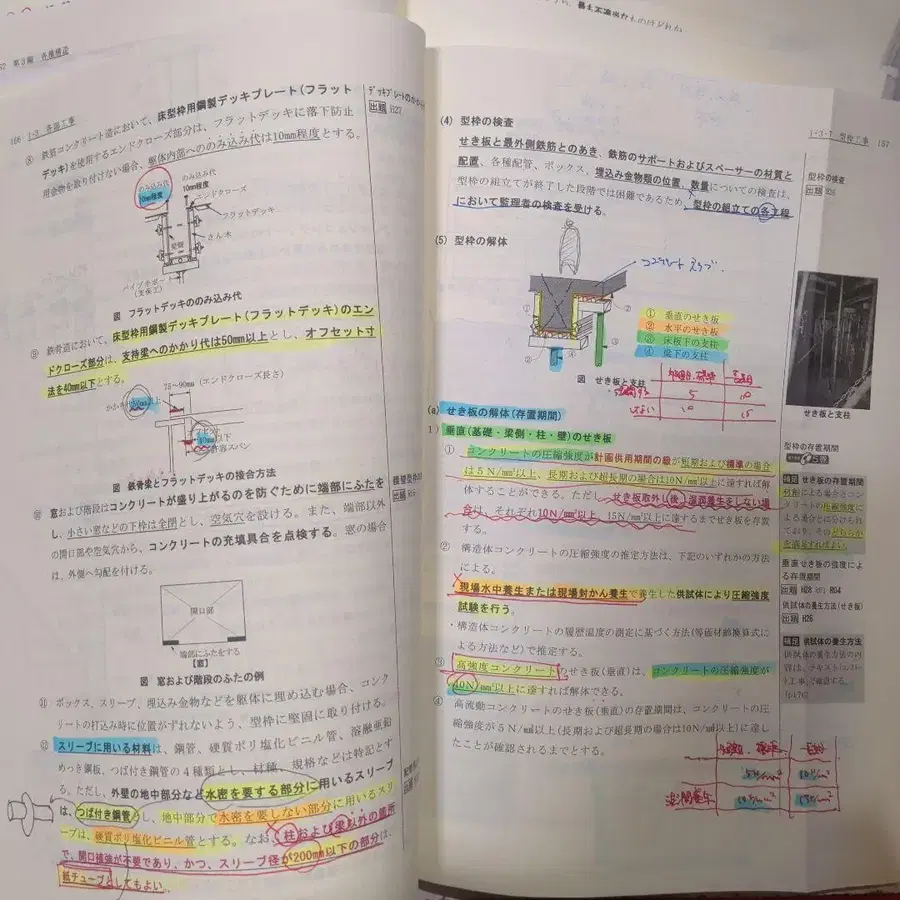 166 1-3 各部工事
⑧ 鉄筋コンクリート造において、床型枠用鋼製デッキプレート(フラット
デッキ)を使用するエンドクローズ部分は、フラットデッキに落下防止
用金物を取り付けない場合、躯体内部へののみ込み代は10mm程度とする。
出題 H27
のみ込み代
10mm程度
のみ込み代
10mm程度
エンドクローズ
フラットデッキ
さん木
梁側
パイプサポート
(支保工)
図 フラットデッキののみ込み代
⑨ 鉄骨造において、床型枠用鋼製デッキプレート(フラットデッキ)のエン
ドクローズ部分は、支持梁へのかかり代は50mm以上とし、オフセット寸
法を40mm以下とする。
75～90mm (エンドクローズ長さ)
40mm以下
許容スパン
図 鉄骨梁とフラットデッキの接合方法
⑩ 窓および階段はコンクリートが盛り上がるのを防ぐために端部にふたを
し、小さい窓などの下枠は全閉とし、空気穴を設ける。また、端部以外
の開口部や空気穴から、コンクリートの充填具合を点検する。窓の場合
は、外側へ勾配を付ける。
開口部
端部にふたをする
【窓】
図 窓および階段のふたの例
⑪ ボックス、スリーブ、埋込み金物などを躯体に埋め込む場合、コンク
リートの打込み時に位置がずれないよう、型枠に堅固に取り付ける。
⑫ スリーブに用いる材料は、鋼管、硬質ポリ塩化ビニル管、溶融亜鉛
めっき鋼板、つば付き鋼管の4種類とし、材種、規格などは特記とす
る。ただし、外壁の地中部分など水密を要する部分に用いるスリーブ
は、つば付き鋼管とし、地中部分で水密を要しない部分に用いるスリ
ーブは、硬質ポリ塩化ビニル管とする。なお、柱および梁以外の箇所
で、開口補強が不要であり、かつ、スリーブ径が200mm以下の部分は、
紙チューブとしてもよい。
1-3-7 型枠工事 167
(4) 型枠の検査
せき板と最外側鉄筋とのあき、鉄筋のサポートおよびスペーサーの材質と
配置、各種配管、ボックス、埋込み金物類の位置、数量についての検査は、
型枠の組立てが終了した段階では困難であるため、型枠の組立ての各工程
において監理者の検査を受ける。
型枠の検査
出題
(5) 型枠の解体
コンクリートスラブ
①
②
③
④
① 垂直のせき板
② 水平のせき板
③ 床板下の支柱
④ 梁下の支柱
図 せき板と支柱
5
10
10
15
せき板と支柱
(a) せき板の解体(存置期間)
1) 垂直(基礎・梁側・柱・壁)のせき板
① コンクリートの圧縮強度が計画供用期間の級が短期および標準の場合
は5N/mm²以上、長期および超長期の場合は10N/mm²以上に達すれば解
体することができる。ただし、せき板取外し後、湿潤養生をしない場
合は、それぞれ10N/mm²以上、15N/mm²以上に達するまでせき板を存置
する。
② 構造体コンクリートの圧縮強度の推定方法は、下記のいずれかの方法
による。
・現場水中養生または現場封かん養生で養生した供試体により圧縮強度
試験を行う。
・構造体コンクリートの履歴温度の測定に基づく方法(等価材齢換算式に
よる方法など)で推定する。
③ 高強度コンクリートのせき板(垂直)は、コンクリートの圧縮強度が
10N/mm²以上に達すれば解体できる。
④ 高流動コンクリートのせき板(垂直)の存置期間は、コンクリートの圧
縮強度が5N/mm²以上(長期および超長期の場合は10N/mm²以上)に達し
たことが確認されるまでとする。
型枠の存置期間
補足
垂直せき板の強度によ
る存置期間
出題 H28 R04
供試体の養生方法(せき板)
出題 H26
補足 供試体の養生方法